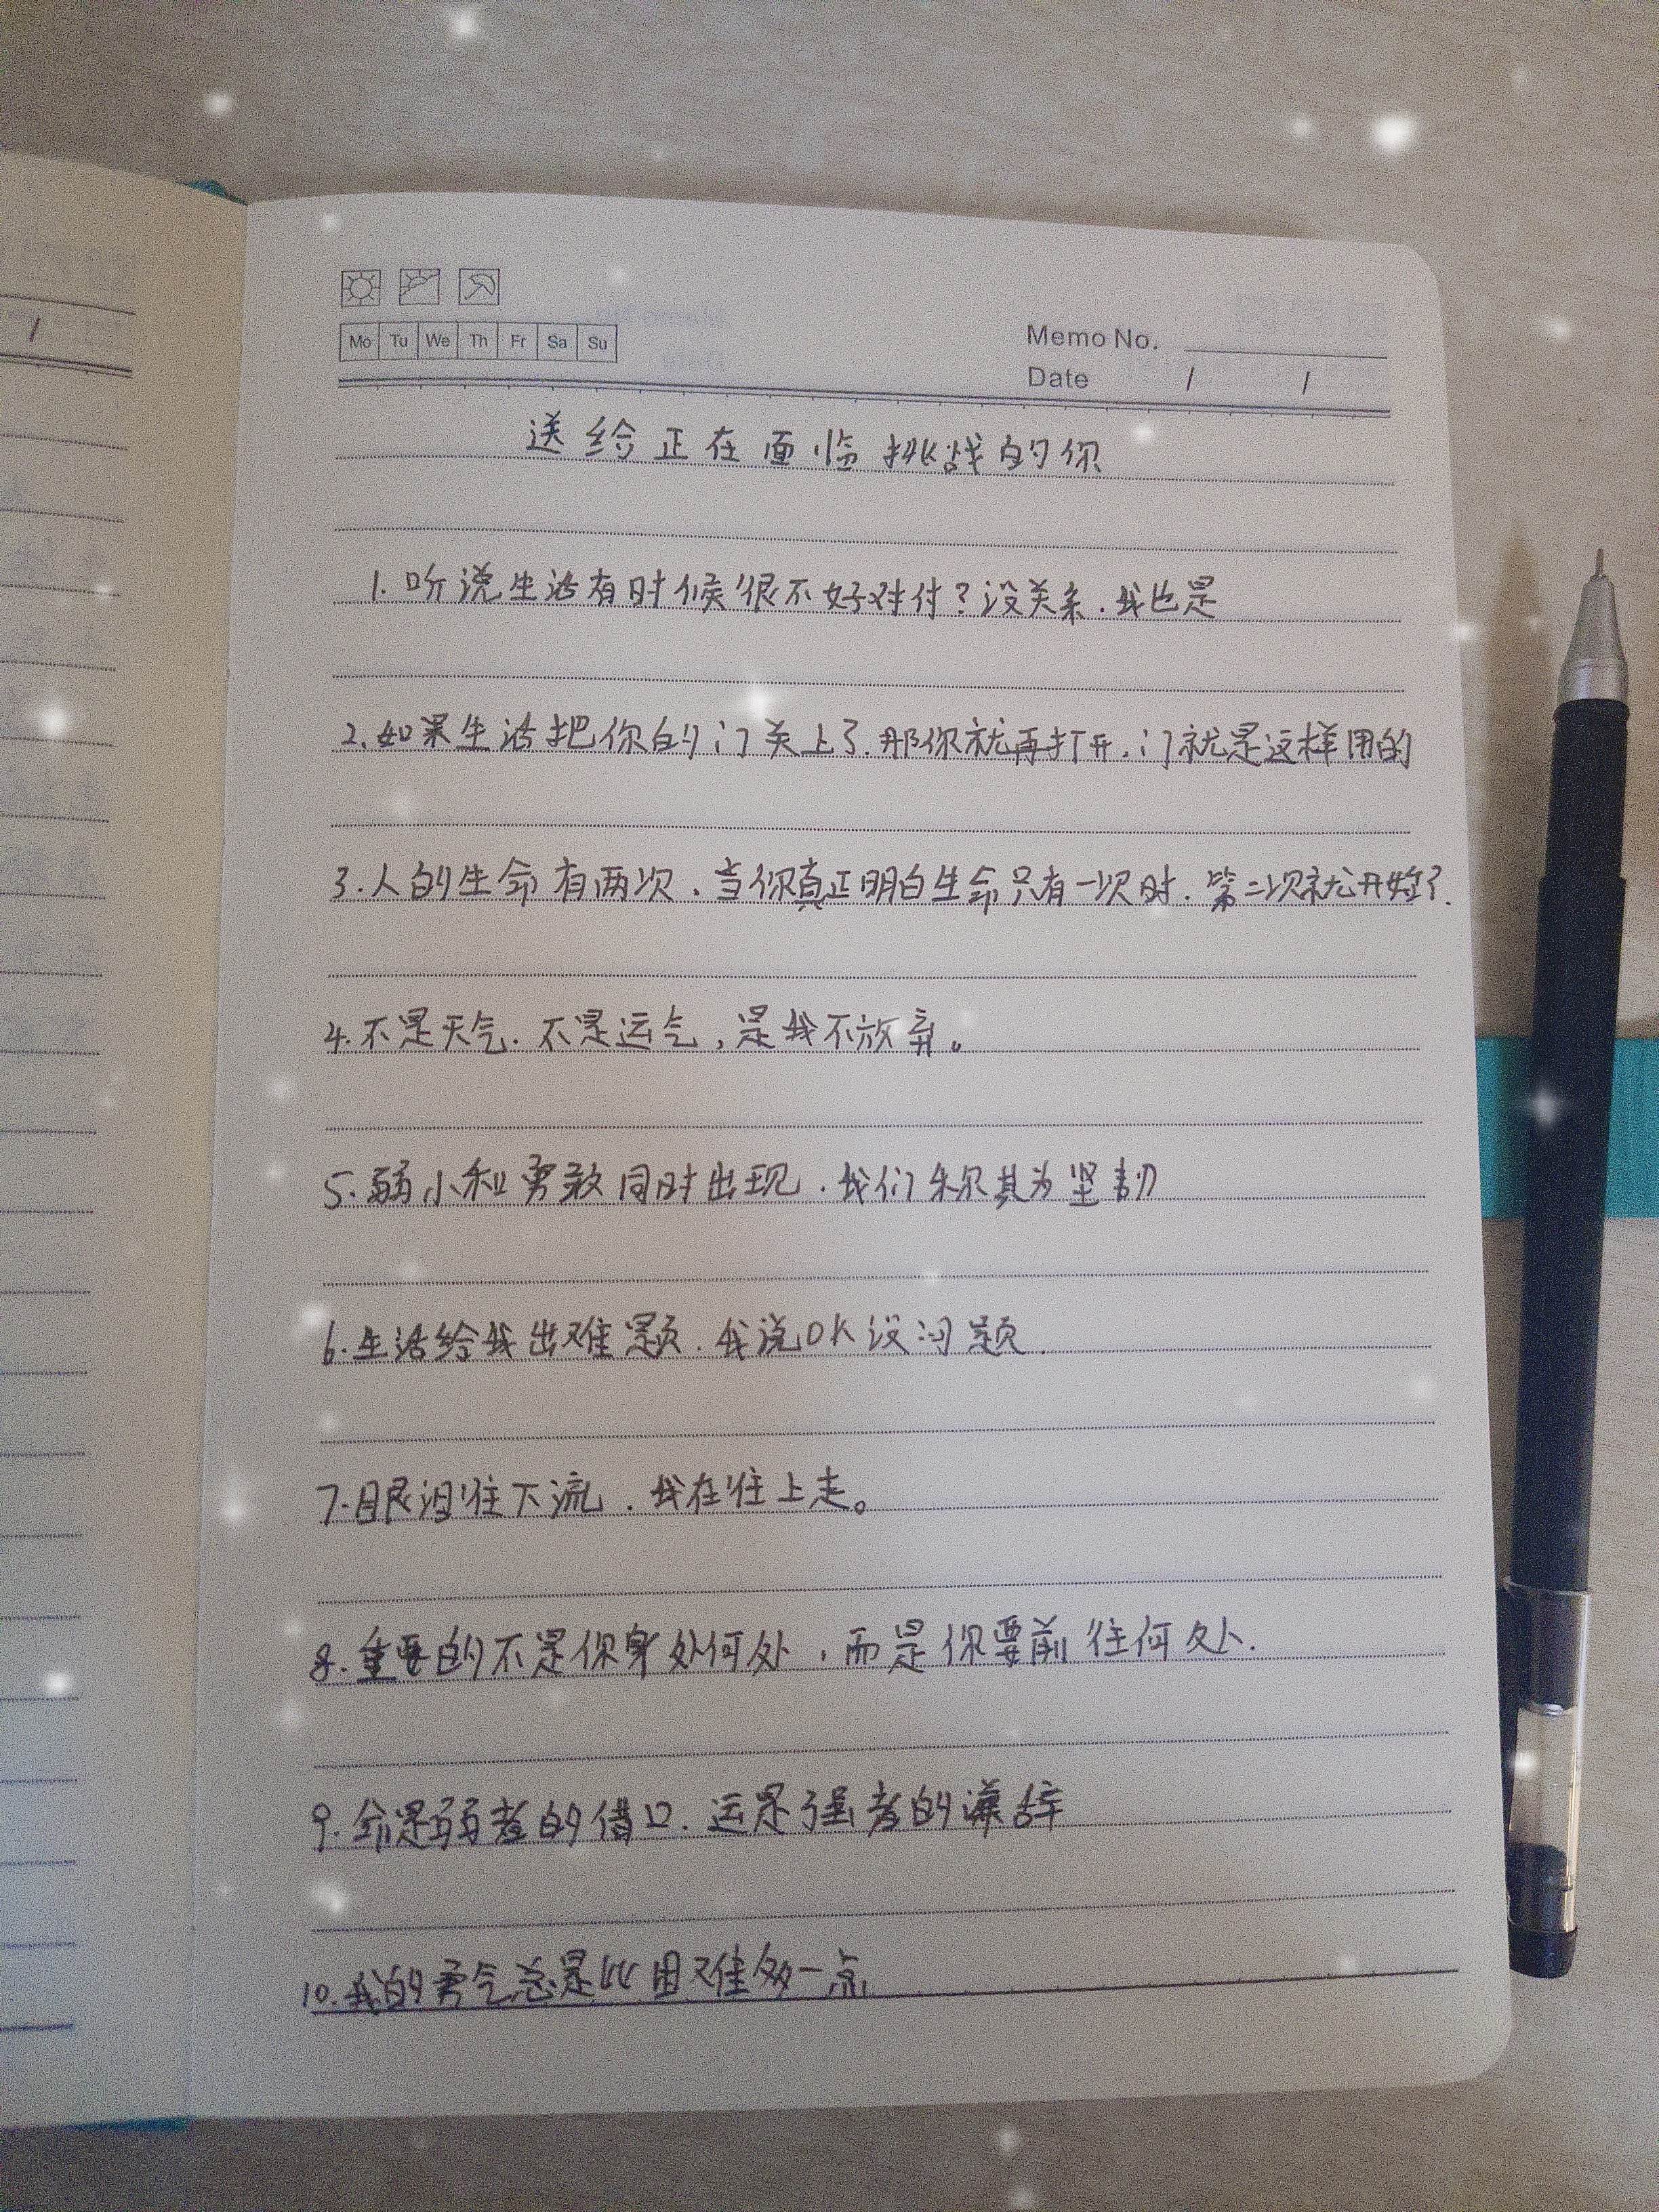 Mo Tu We Th Fr Sa Su
Memo No.
Date / /
送给正在面临挑战的你
1.听说生活有时候很不好对付?没关系.我也是
2.如果生活把你的门关上了.那你就再打开.门就是这样用的
3.人的生命有两次.当你真正明白生命只有一次时.第二次就开始了.
4.不是天气.不是运气,是我不放弃。
5.弱小和勇敢同时出现.我们称其为坚韧
6.生活给我出难题.我说OK没问题.
7.眼泪往下流.我在往上走。
8.重要的不是你身处何处,而是你要前往何处.
9.命是弱者的借口.运是强者的谦辞
10.我的勇气总是比困难多一点